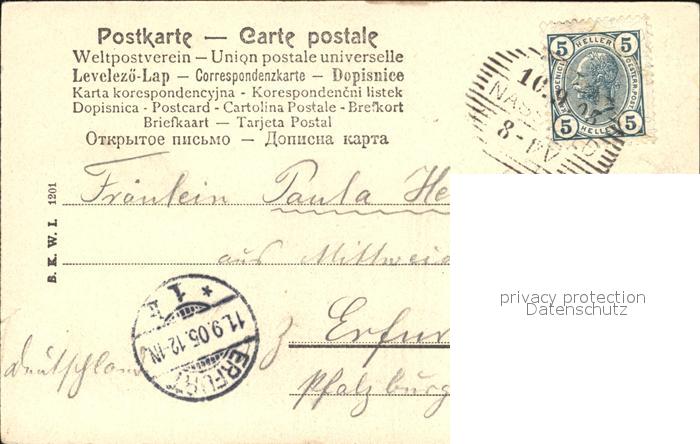 Postkarte — Carte postale
Weltpostverein – Union postale universelle
Levelező-Lap – Correspondenzkarte – Dopisnice
Karta korespondencyjna - Korespondenční listek
Dopisnica - Postcard - Cartolina Postale - Brefkort
Briefkaart – Tarjeta Postal
Открытое письмо – Дописна карта
5 HELLER 5
5 HELLER 5
10.9.05
NASS
8-
B. K. W. I. 1201
Fräulein Paula He
aus Mittweid
z Erfur
Pfalzburg
Deutschland
* 1
11.9.05.12-1N
ERFURT
privacy protection
Datenschutz